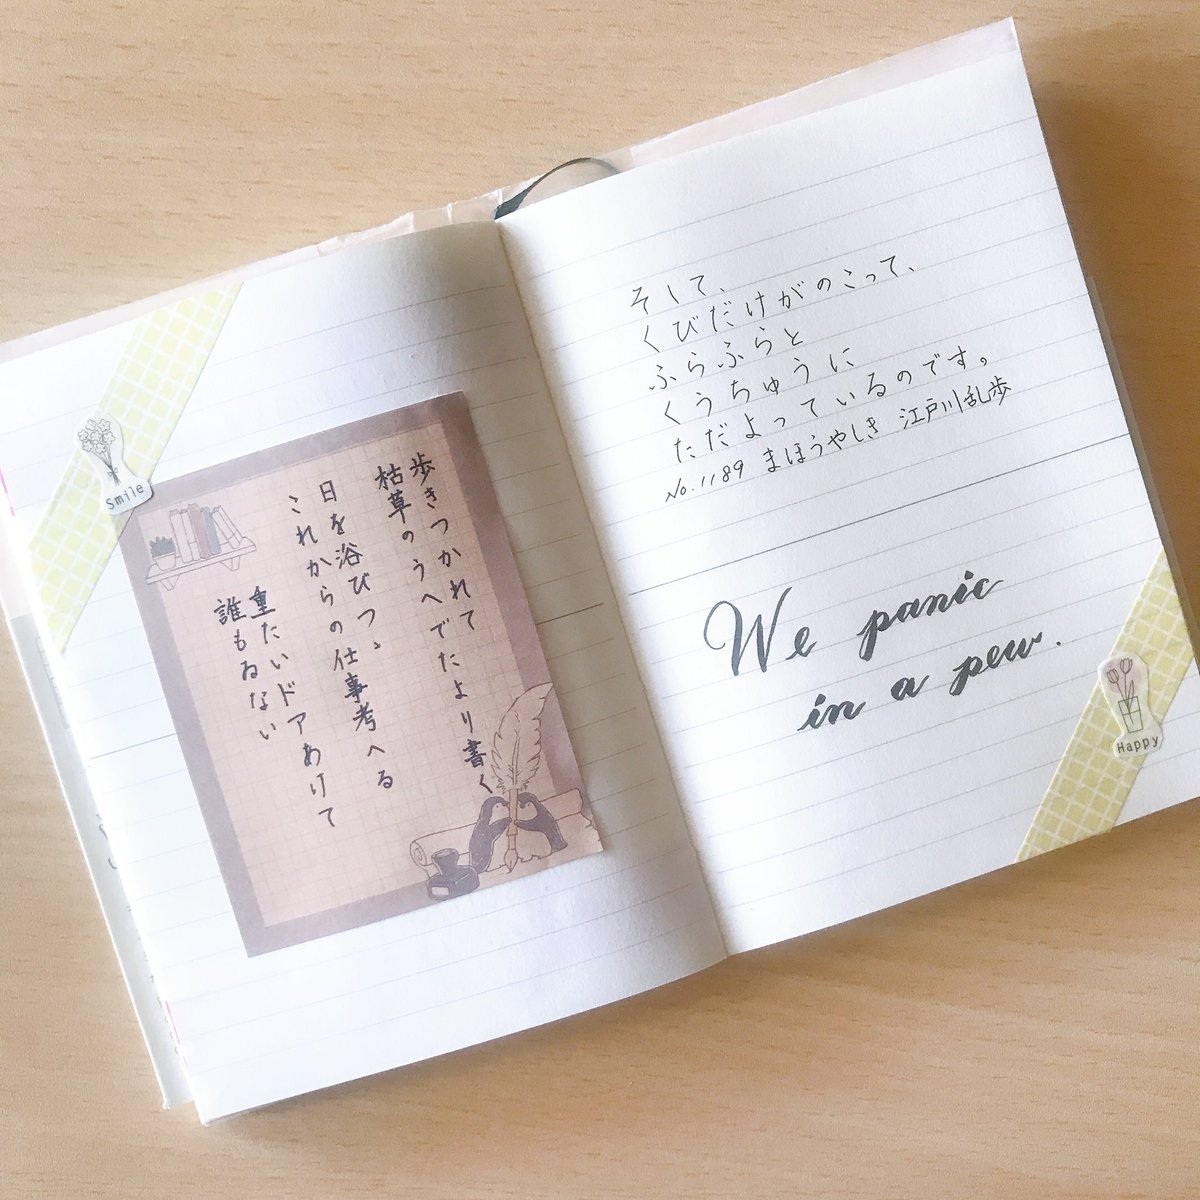 Smile
歩きつかれて
枯草のうへでたより書く
日を浴びつゝ
これからの仕事考へる
重たいドアあけて
誰もゐない
そして、
くびだけがのこって、
ふらふらと
くうちゅうに
ただよっているのです。
No.1189 まほうやしき 江戸川乱歩
We panic
in a pew.
Happy